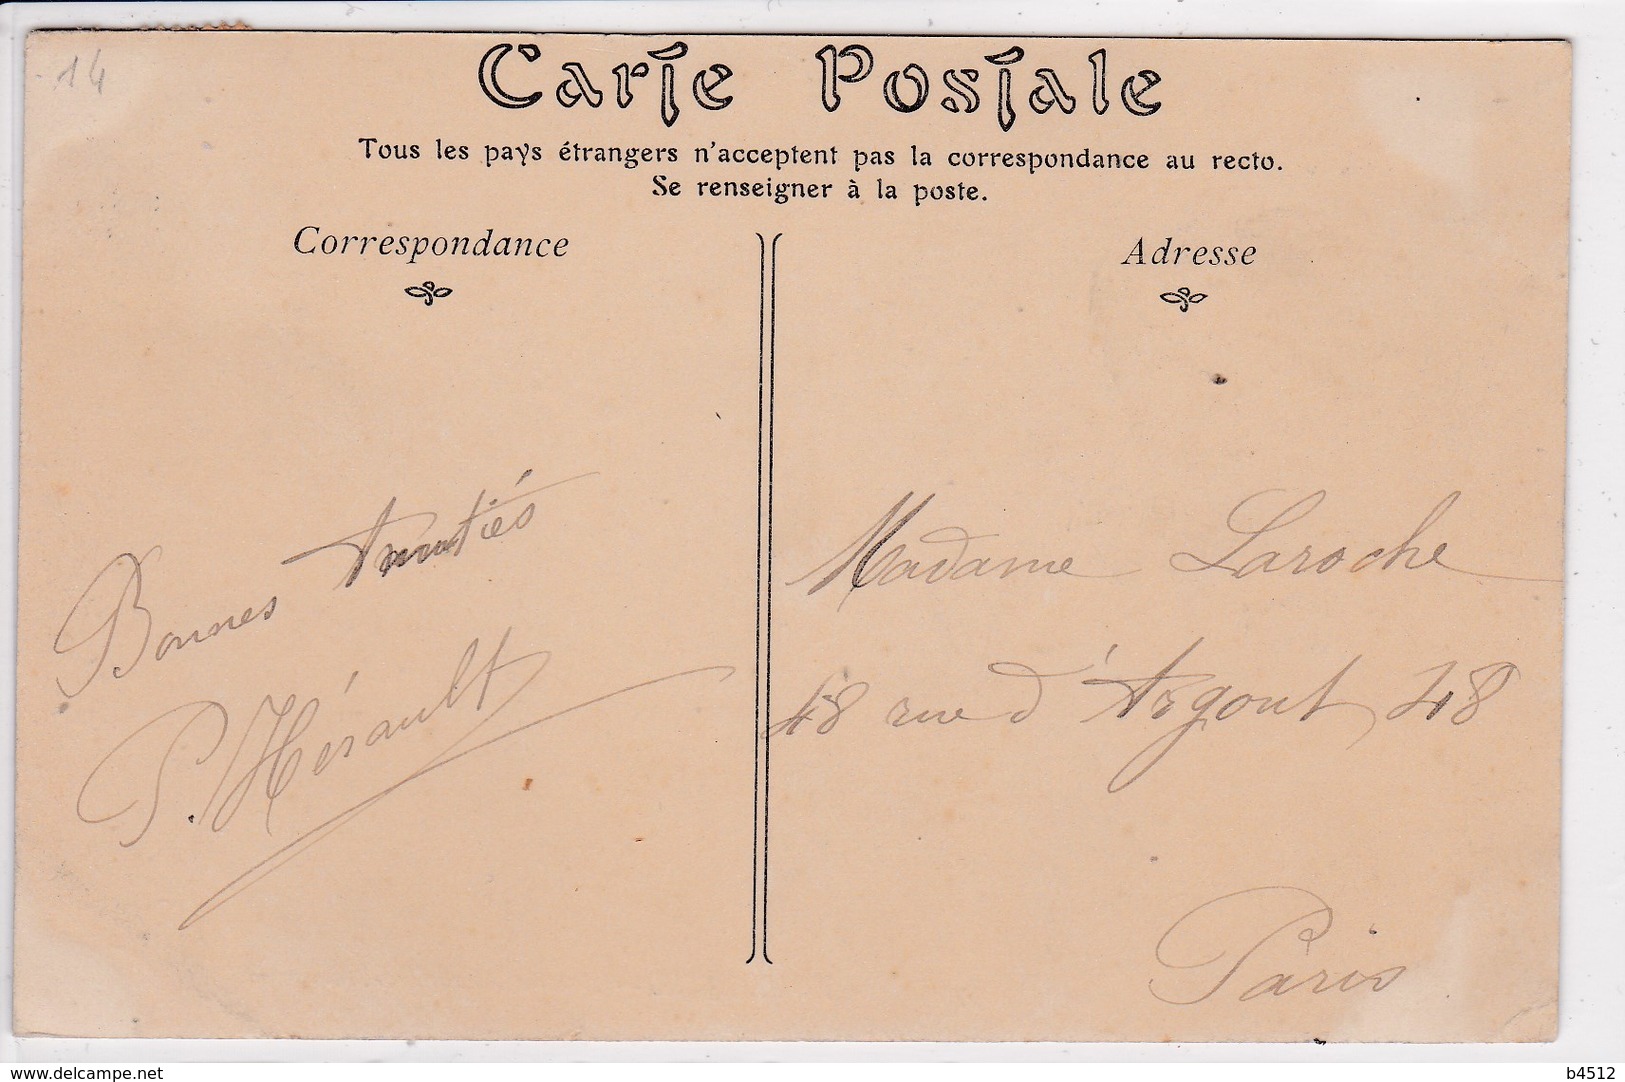 14
Carte Postale
Tous les pays étrangers n'acceptent pas la correspondance au recto.
Se renseigner à la poste.
Correspondance
Bonnes Amitiés
P. Hérault
Adresse
Madame Laroche
48 rue d'Argout 48
Paris
www.delcampe.net
b4512